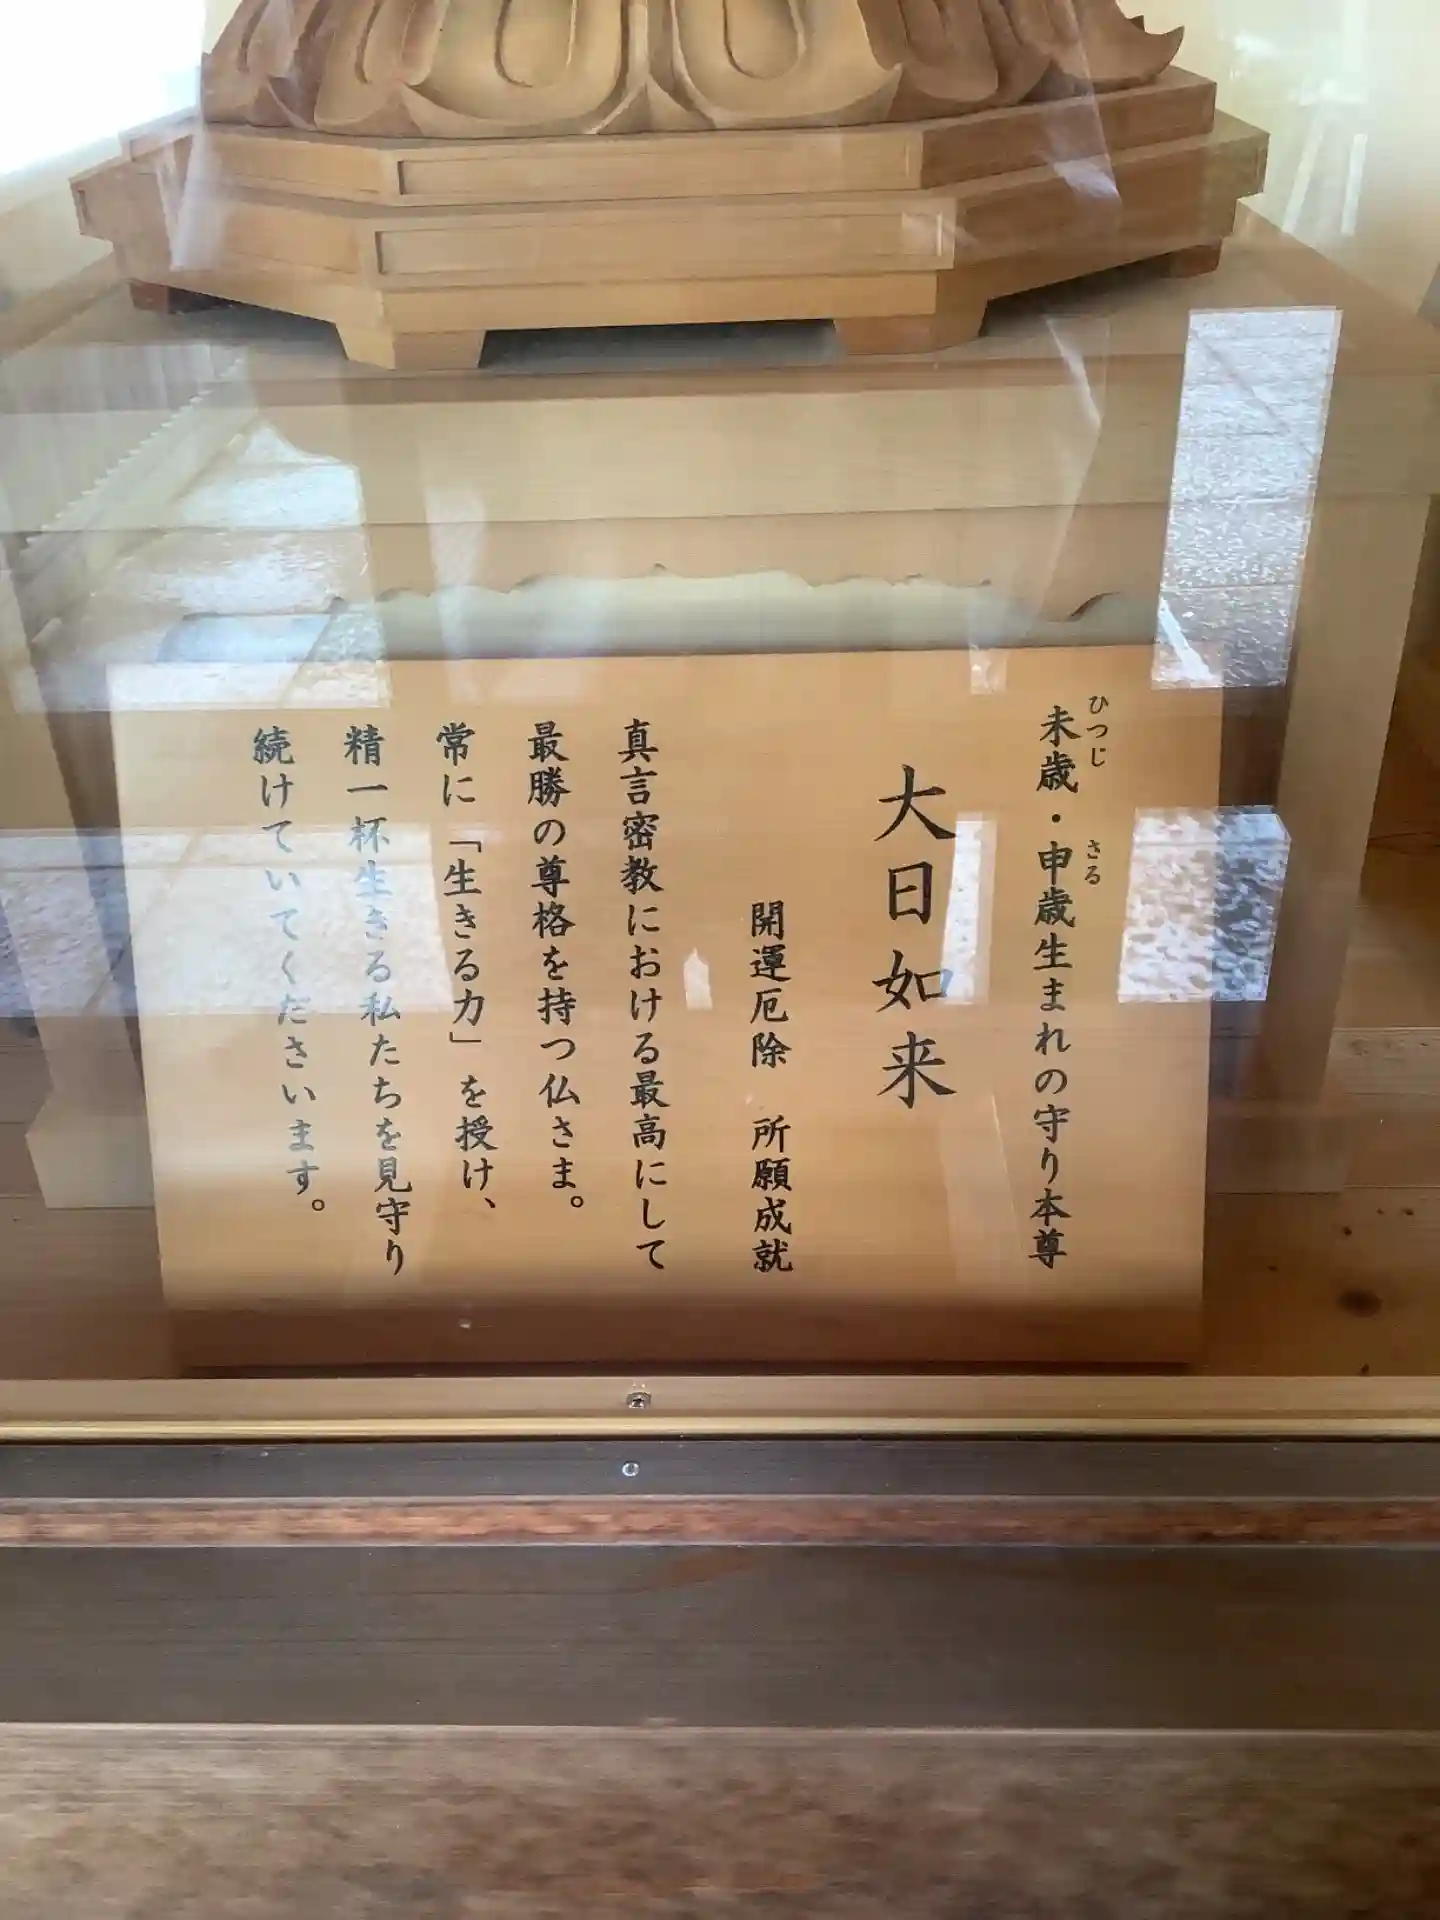 未歳・申歳生まれの守り本尊
ひつじ
さる
大日如来
開運厄除　所願成就
真言密教における最高にして
最勝の尊格を持つ仏さま。
常に「生きる力」を授け、
精一杯生きる私たちを見守り
続けていてくださいます。